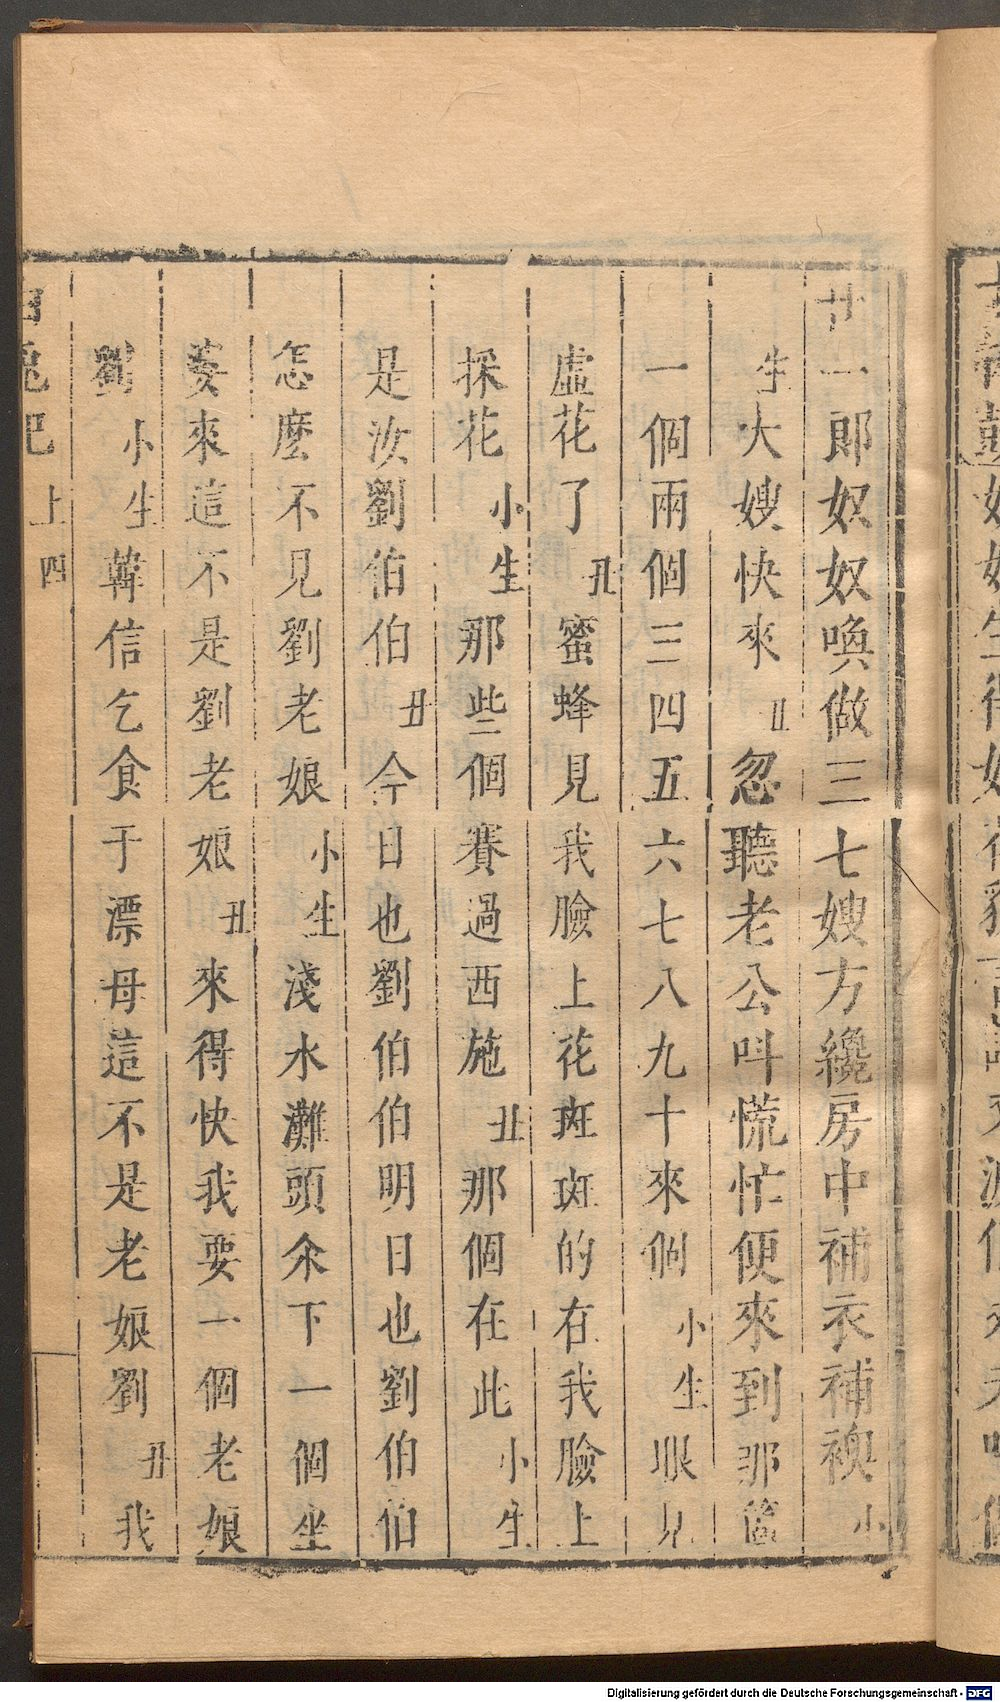 廿一郎奴奴喚做三七嫂方纔房中補衣補襖小
生大嫂快來丑忽聽老公呌慌忙便來到那箇
一個兩個三四五六七八九十來個小生眼見
虛花了丑蜜蜂見我臉上花斑斑的在我臉上
採花小生那些個賽過西施丑那個在此小生
是汝劉伯伯丑今日也劉伯伯明日也劉伯伯
怎麽不見劉老娘小生淺水灘頭氽下一個坐
婆來這不是劉老娘丑來得快我要一個老娘
劉小生韓信乞食于漂母這不是老娘劉丑我
白兎記 上 四
Digitalisierung gefördert durch die Deutsche Forschungsgemeinschaft - DFG